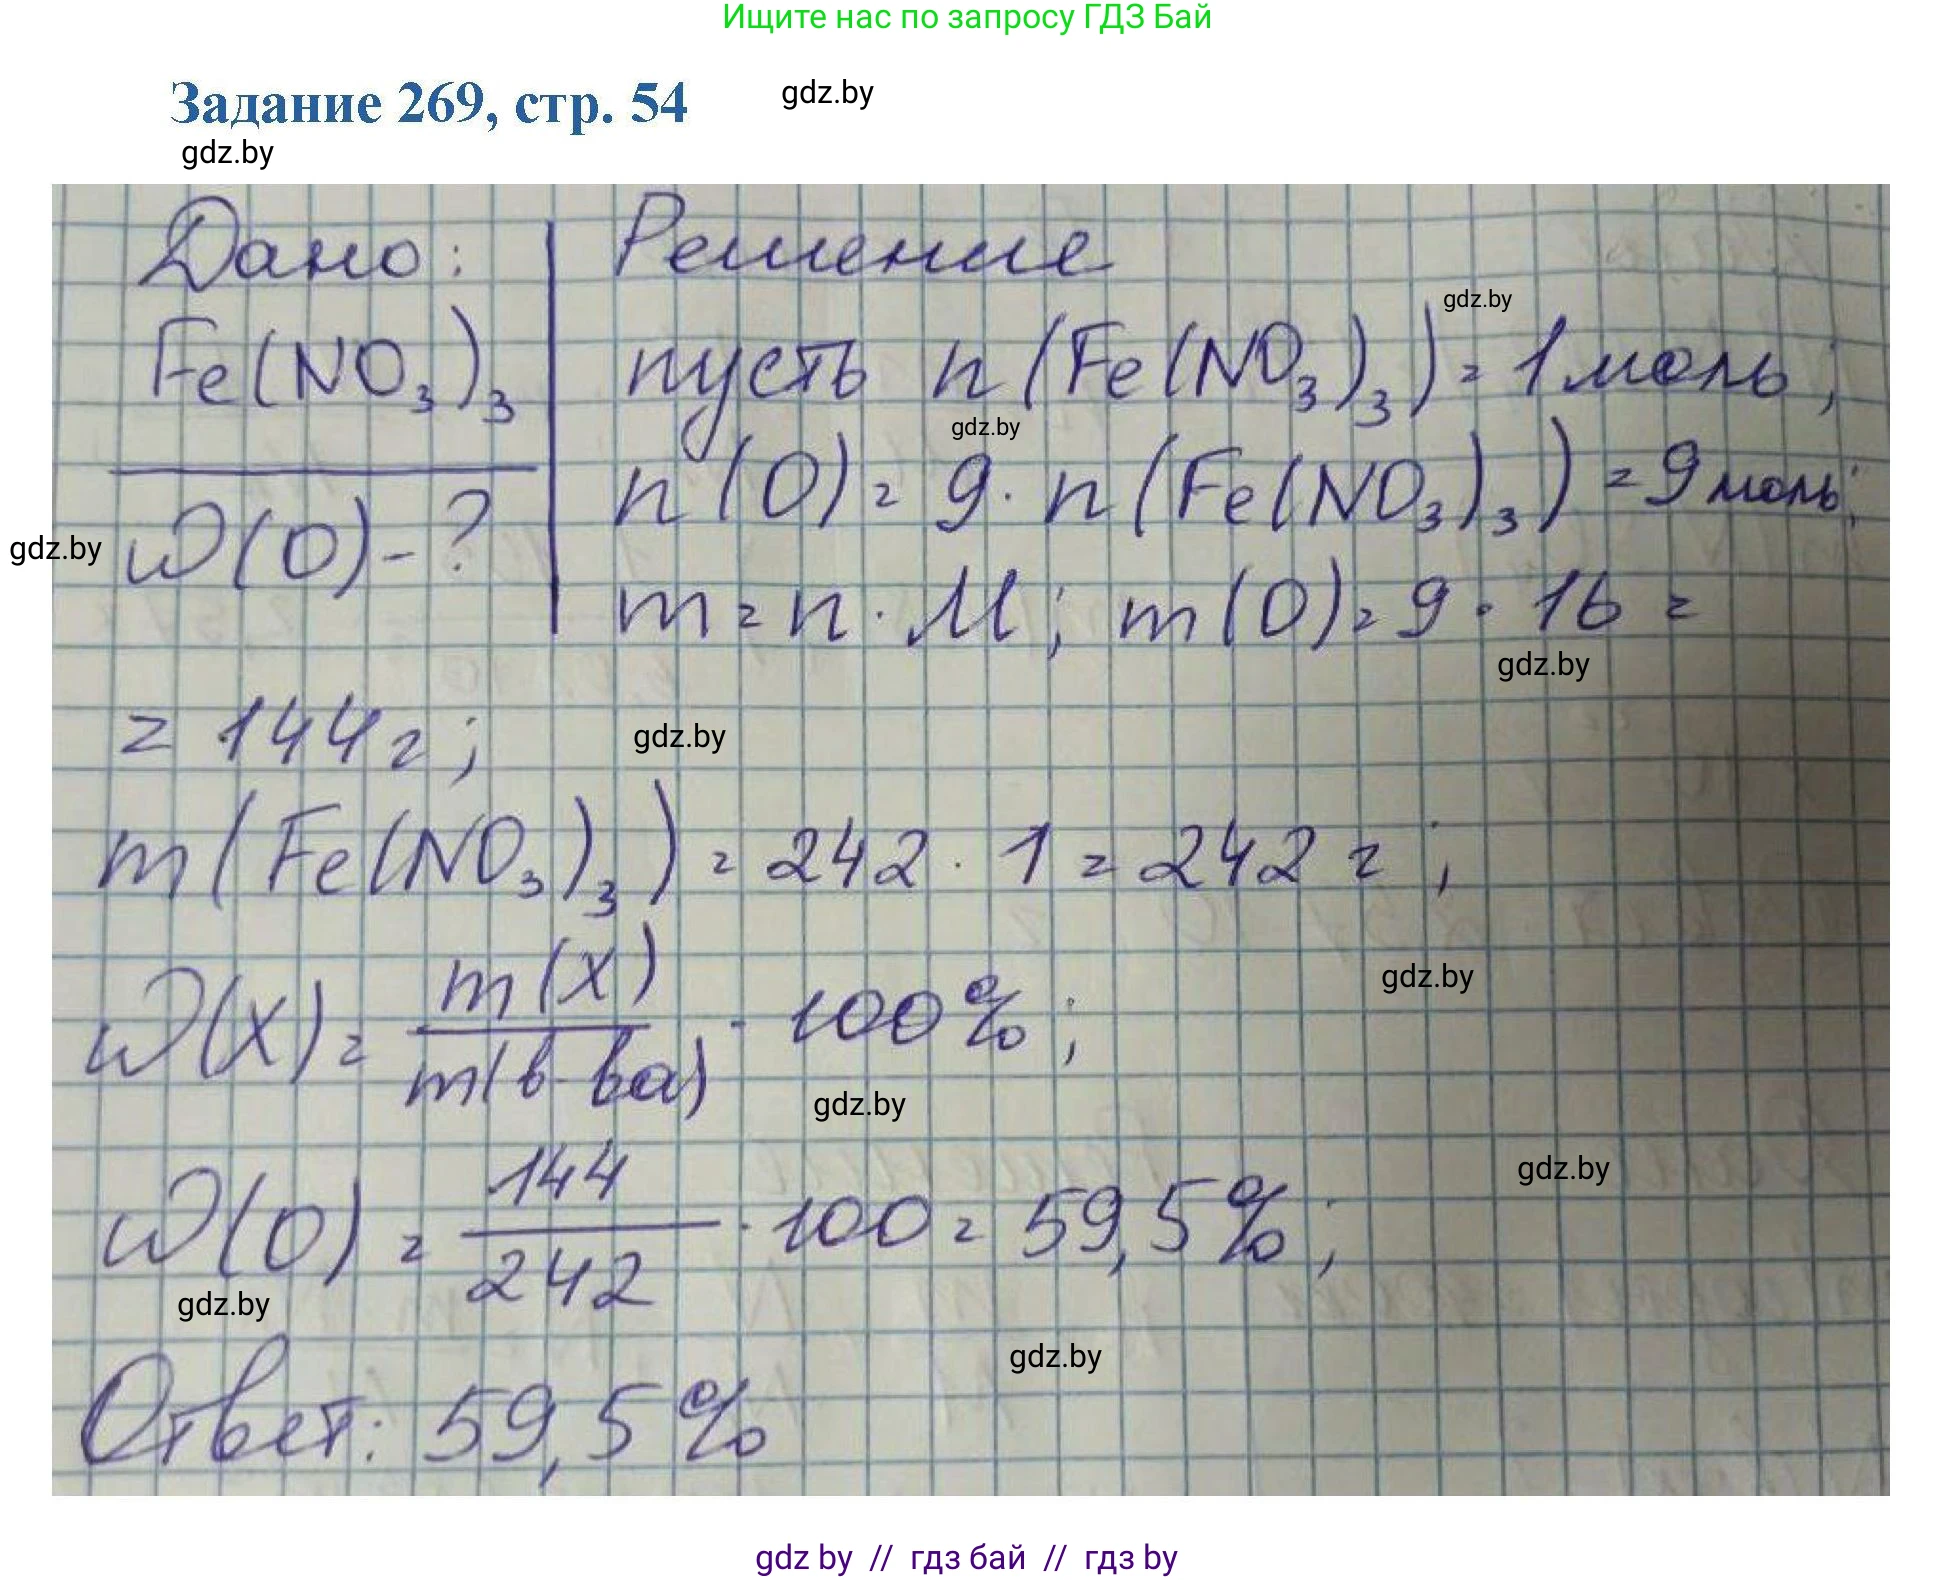 Ищите нас по запросу ГДЗ Бай
Задание 269, стр. 54
gdz.by
gdz.by
Дано:
Fe(NO₃)₃
W(O) - ?
Решение
gdz.by
пусть n(Fe(NO₃)₃) = 1 моль;
gdz.by
n(O) = 9 · n(Fe(NO₃)₃) = 9 моль;
gdz.by
m = n · M; m(O) = 9 · 16 =
gdz.by
= 144 г;
gdz.by
m(Fe(NO₃)₃) = 242 · 1 = 242 г;
gdz.by
W(X) = m(X) / m(в-ва) · 100%;
gdz.by
gdz.by
W(O) = 144 / 242 · 100 = 59,5%;
gdz.by
gdz.by
Ответ: 59,5%
gdz by // гдз бай // гдз by